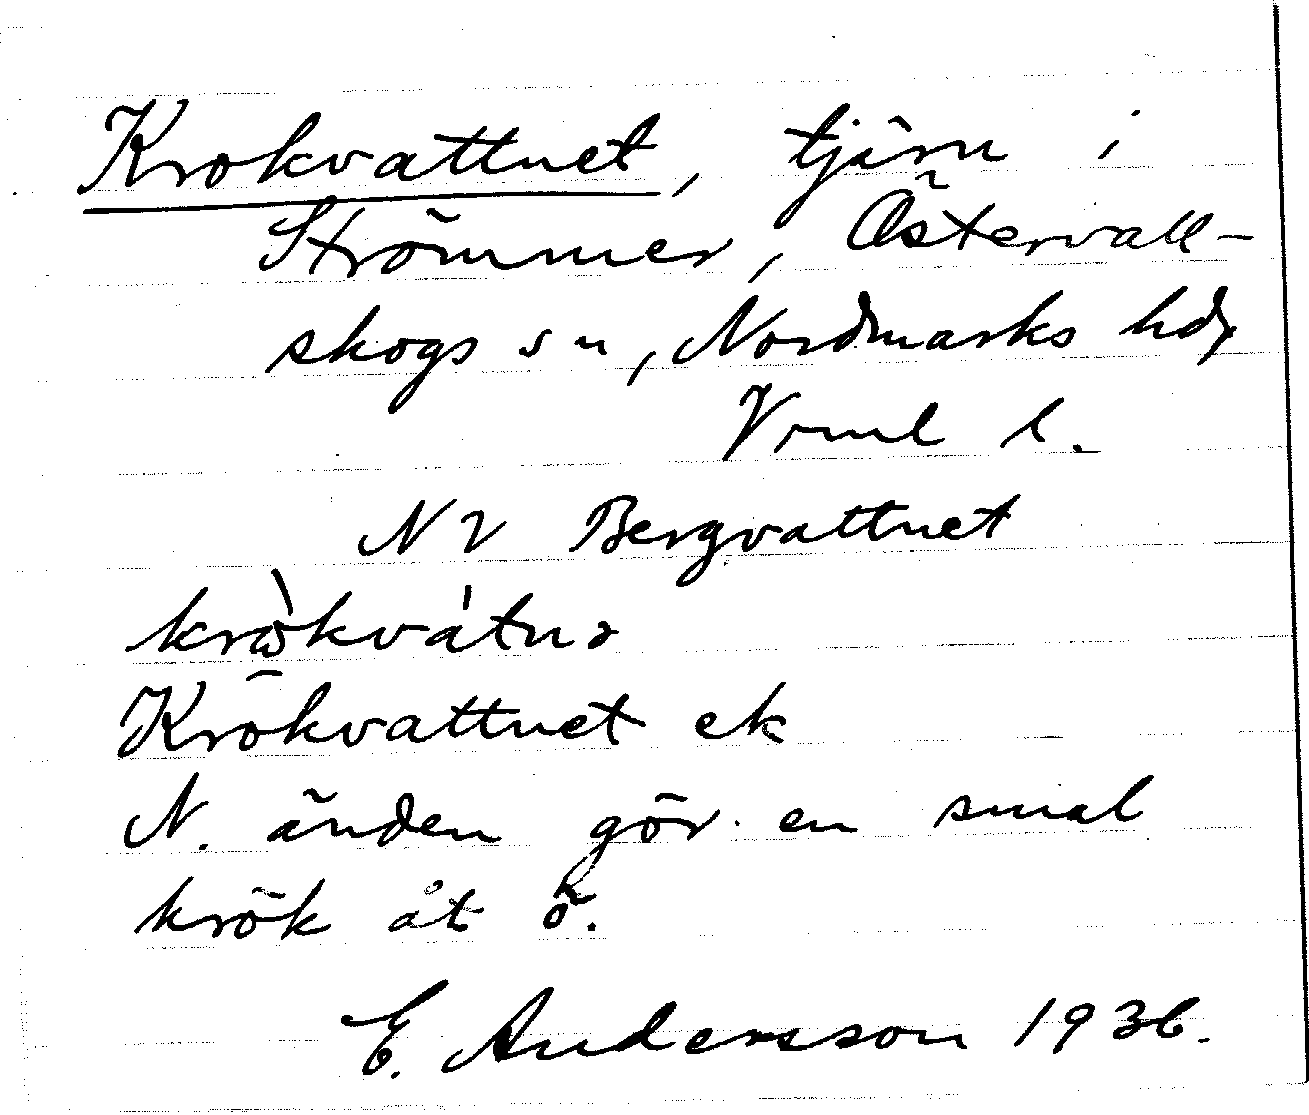 Krokvattnet, tjärn i
Strömmer, Östervall-
skogs sn, Nordmarks hd,
Vrml l.
NV Bergvattnet
Krökvattnet ek
N. änden gör en smal
krök åt ö.
E. Andersson 1936.